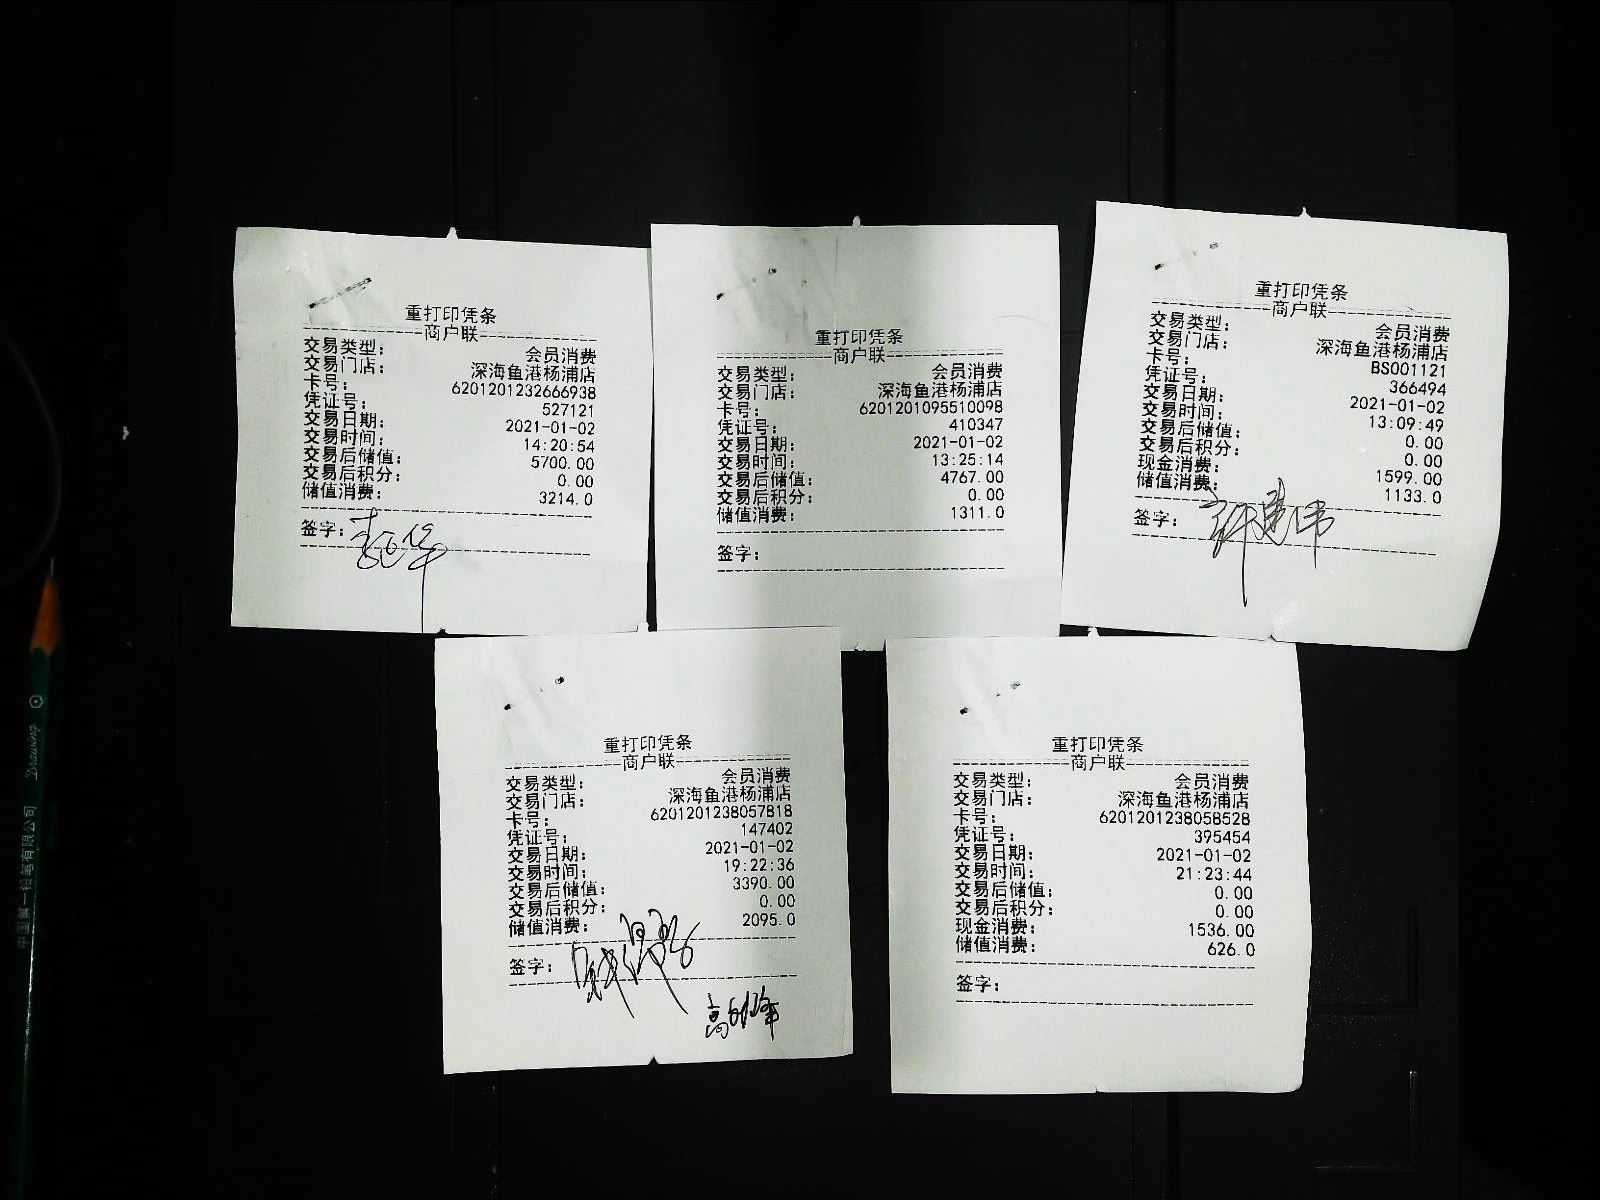 重打印凭条
商户联
交易类型: 会员消费
交易门店: 深海鱼港杨浦店
卡号: 6201201232666938
凭证号: 527121
交易日期: 2021-01-02
交易时间: 14:20:54
交易后储值: 5700.00
交易后积分: 0.00
储值消费: 3214.0
签字:
重打印凭条
商户联
交易类型: 会员消费
交易门店: 深海鱼港杨浦店
卡号: 6201201095510098
凭证号: 410347
交易日期: 2021-01-02
交易时间: 13:25:14
交易后储值: 4767.00
交易后积分: 0.00
储值消费: 1311.0
签字:
重打印凭条
商户联
交易类型: 会员消费
交易门店: 深海鱼港杨浦店
卡号: BS001121
凭证号: 366494
交易日期: 2021-01-02
交易时间: 13:09:49
交易后储值: 0.00
交易后积分: 0.00
现金消费: 1599.00
储值消费: 1133.0
签字: 许建伟
重打印凭条
商户联
交易类型: 会员消费
交易门店: 深海鱼港杨浦店
卡号: 6201201238057818
凭证号: 147402
交易日期: 2021-01-02
交易时间: 19:22:36
交易后储值: 3390.00
交易后积分: 0.00
储值消费: 2095.0
签字:
重打印凭条
商户联
交易类型: 会员消费
交易门店: 深海鱼港杨浦店
卡号: 6201201238058528
凭证号: 395454
交易日期: 2021-01-02
交易时间: 21:23:44
交易后储值: 0.00
交易后积分: 0.00
现金消费: 1536.00
储值消费: 626.0
签字: